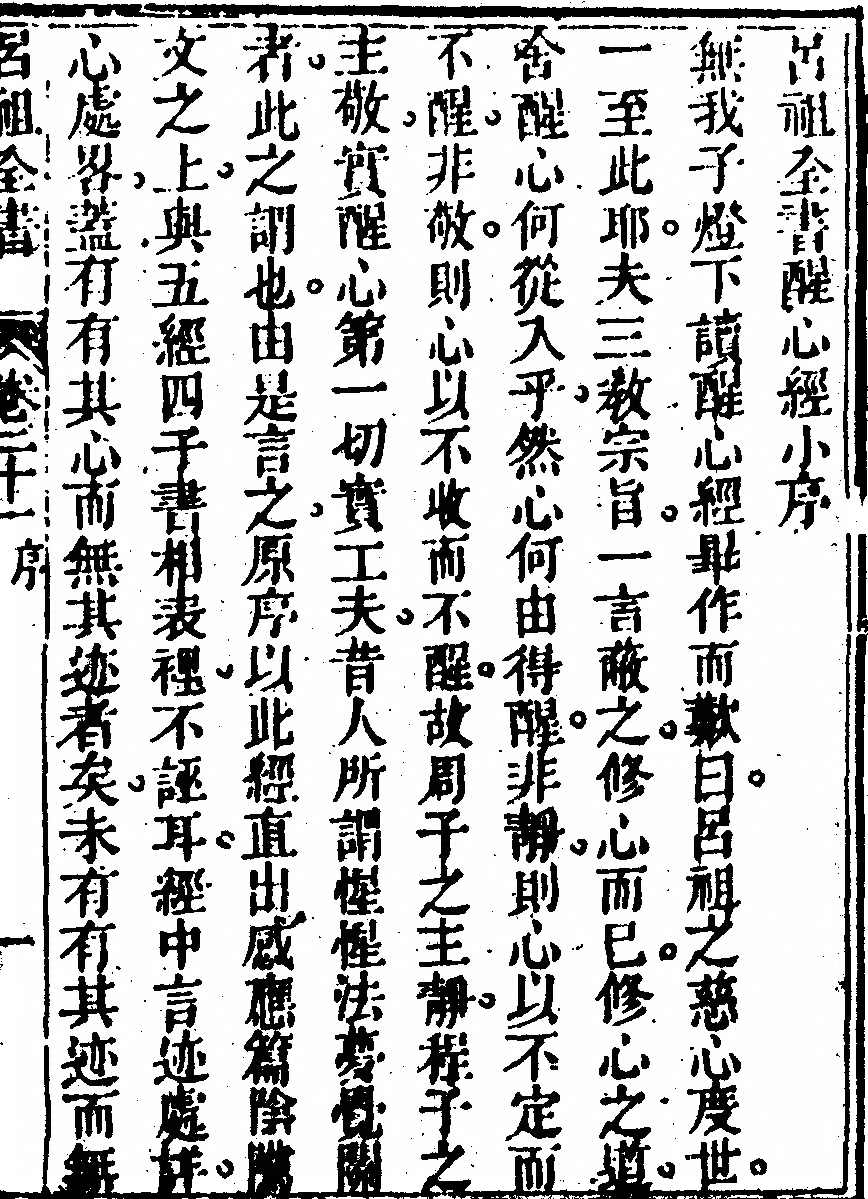 呂祖全書醒心經小序
無我子燈下讀醒心經畢作而歎曰呂祖之慈心度世
一至此耶夫三教宗旨一言蔽之修心而已修心之道
舍醒心何從入乎然心何由得醒非靜則心以不定而
不醒非敬則心以不收而不醒故周子之主靜程子之
主敬實醒心第一切實工夫昔人所謂惺惺法夢覺關
者此之謂也由是言之原序以此經直出感應篇陰隲
文之上與五經四子書相表裡不誣耳經中言迹處詳
心處畧蓋有有其心而無其迹者矣未有有其迹而無
呂祖全書 卷三十一 序 一